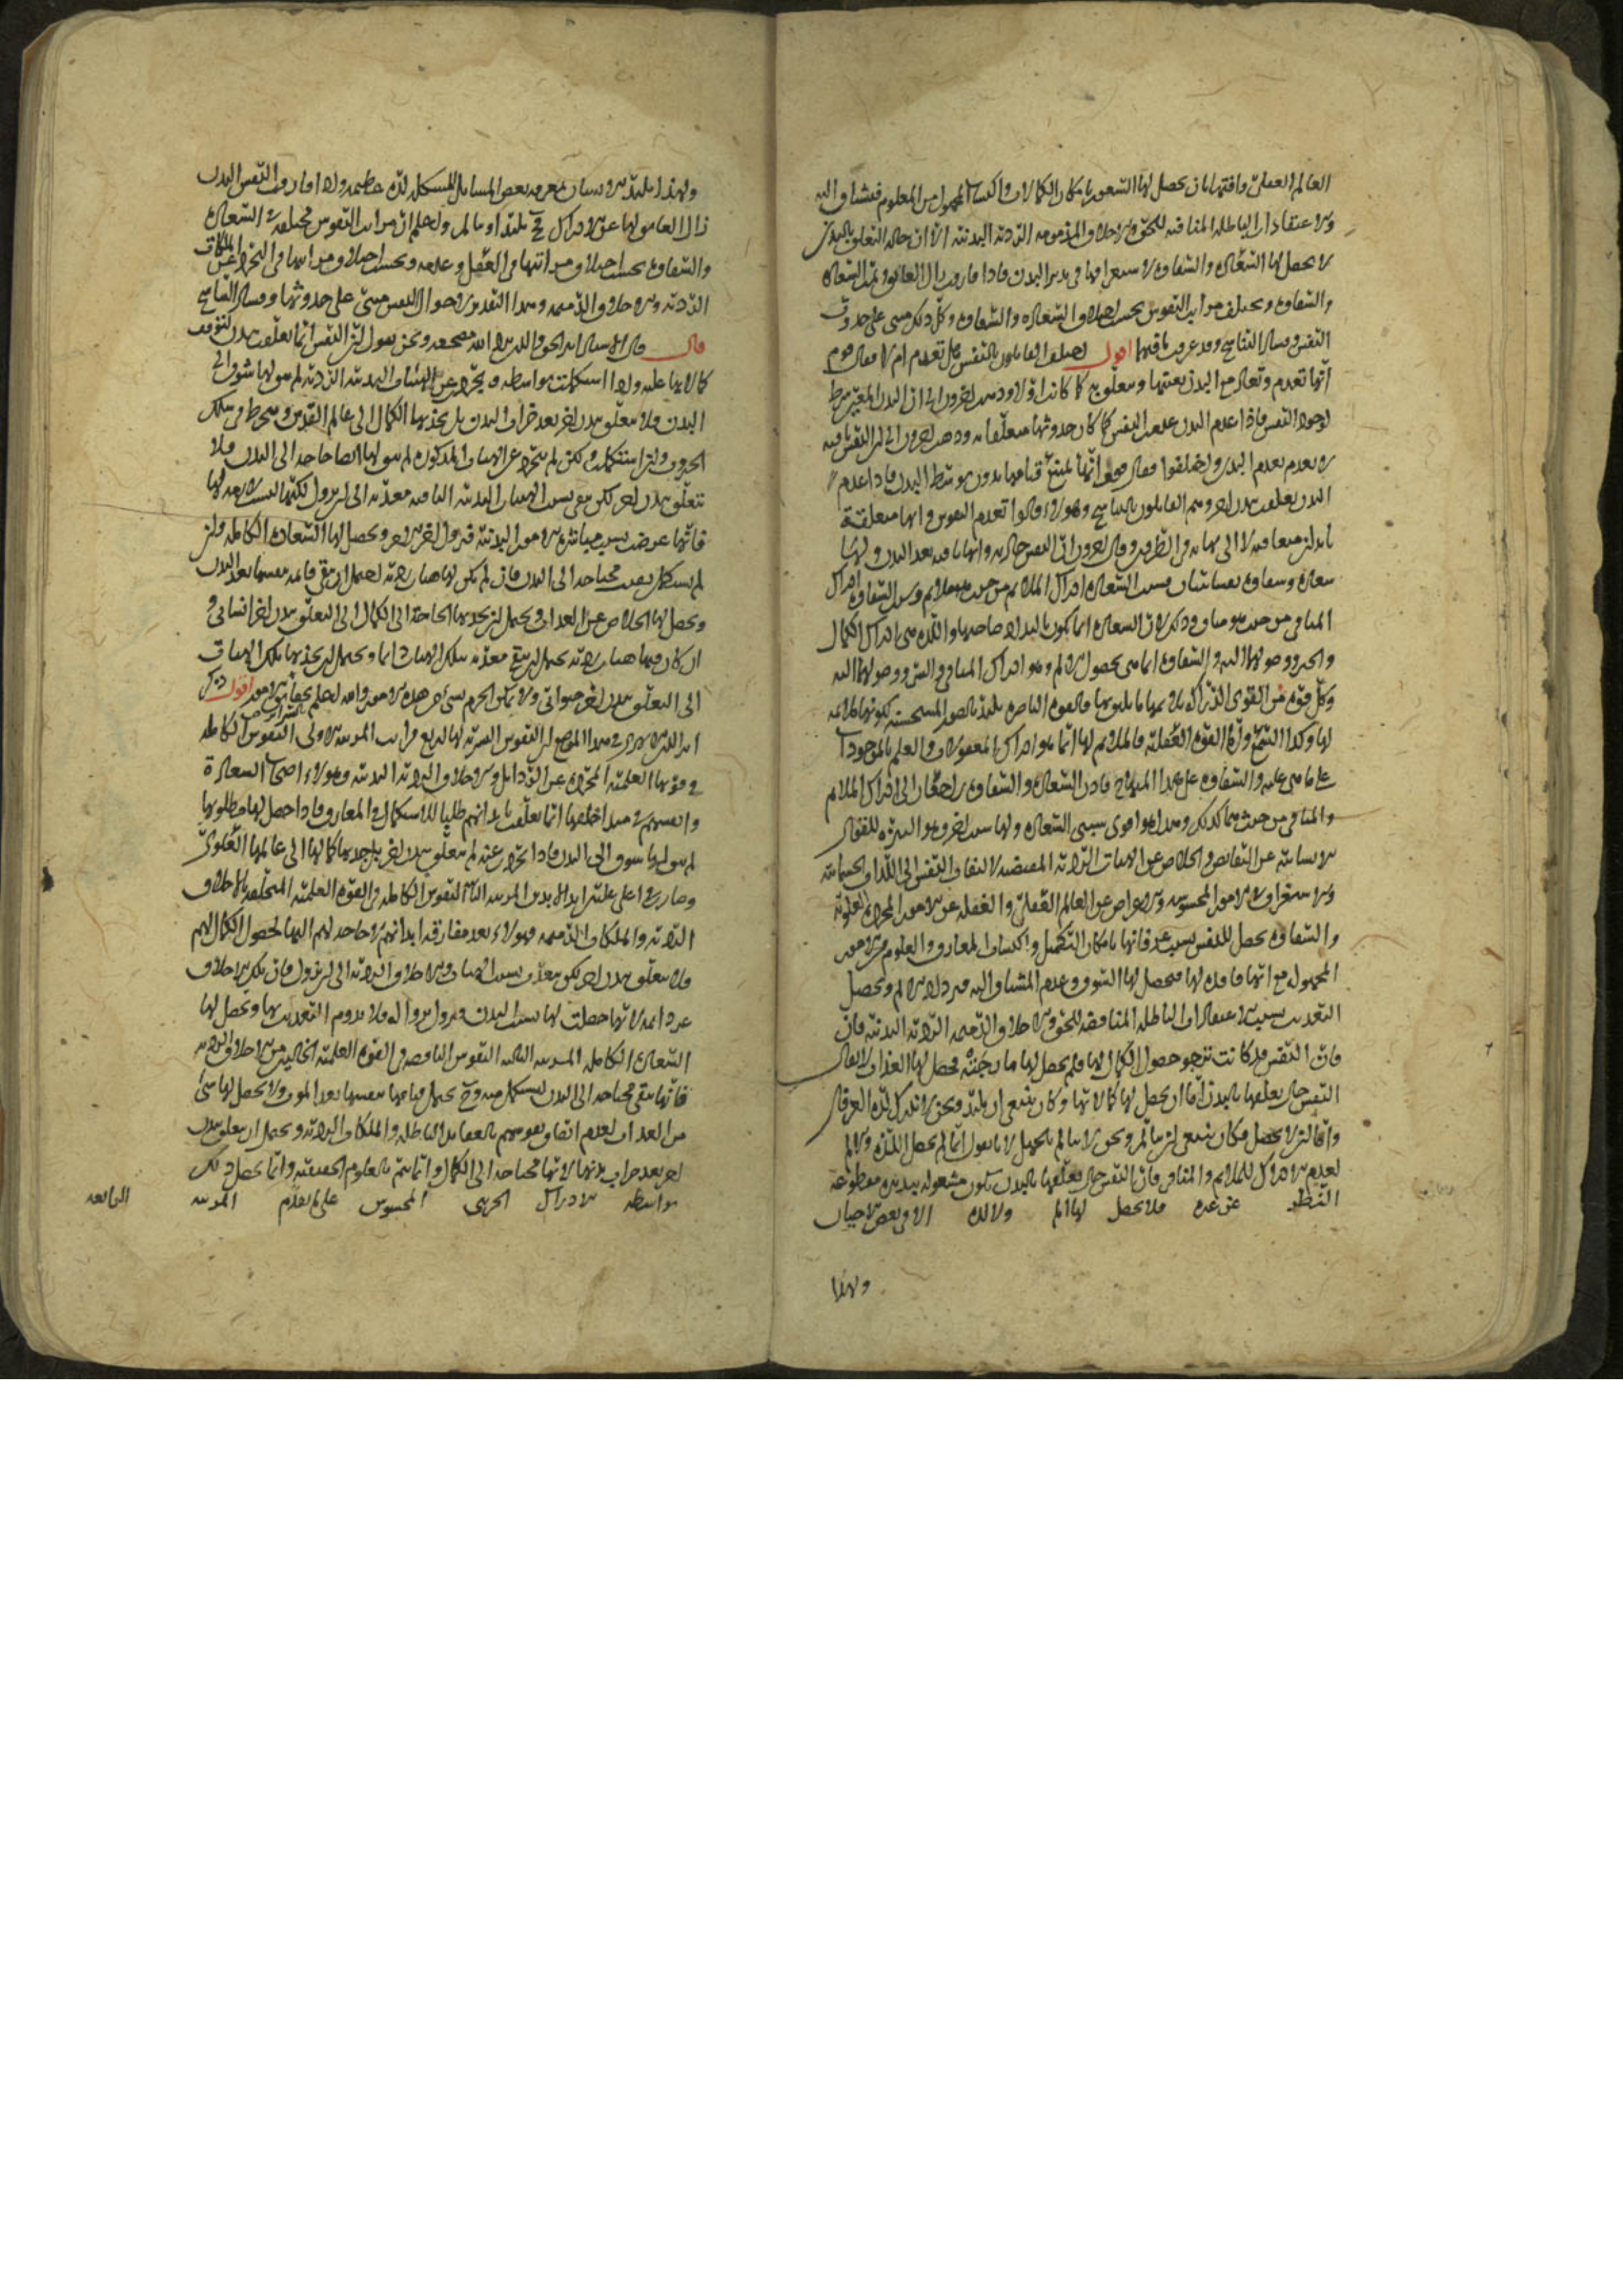 العالم العقلى واقتها بان يحصل لها الشعور بامكان الكمالات واكتساب المجهول من المعلوم فيشتاق اليه
والاعتقادات الباطلة المنافية للحق والاخلاق المذمومة الردية البدنية الا ان حالة التعلق بالبدن
لا يحصل لها السعادة والشقاوة لاستغراقها فى تدبير البدن فاذا فارقت زال العائق السعادة
والشقاوة ويختلف مراتب النفوس بحسب اختلاف السعادة والشقاوة وكل ذلك مبنى على حدوث
النفس وفساد التناسخ وقد عرفت ما فيهما اقول اختلف القائلون بالنفس هل تعدم ام لا فقال قوم
انها تعدم وتعاد مع البدن بعينها ومتعلق به كما كانت اولا وذهب اخرون الى ان البدن شرط
لوجود النفس فاذا عدم البدن عدمت النفس كما كان حدوثها متعلقا به وذهب اخرون الى ان النفس باقية
لا يعدم بعدم البدن واختلفوا فقال قوم انها يمتنع قيامها بدون توسط البدن فاذا عدم
البدن تعلقت ببدن اخر وهم القائلون بالتناسخ وهؤلاء قالوا تعدم النفوس وانها متعلقة
بابدان متعاقبة لا الى نهاية فى الطرفين وقال اخرون ان النفس حادثة وانها باقية بعد البدن ولها
سعادة وشقاوة نفسانيتان السعادة ادراك الملايم من حيث هو ملايم والشقاوة ادراك
المنافى من حيث هو مناف وذلك لان السعادة انما تكون باللذة لصاحبها واللذة هى ادراك الكمال
والخير ووصولهما اليه والشقاوة انما هى بحصول الالم وهو ادراك المنافى والشر ووصولهما اليه
وكل قوة من القوى الدراكة يلايمها ما يليق بها فالقوة الباصرة يلتذ بالصور المستحسنة لكونها ملايمة
لها وكذا الشم واما القوة العقلية فالملايم لها انما هو ادراك المعقولات والعلم بالموجودات
على ما هى عليه والشقاوة على هذا المنهاج فاذن السعادة والشقاوة راجعتان الى ادراك الملايم
والمنافى من حيث هما كذلك وهذا هو اقوى سببى السعادة ولها سبب اخر وهو التنزه للقوى
الانسانية عن النقائص والخلاص عن الهيئات الردية المقتضية لالتفات النفس الى اللذات الجسمانية
والاستغراق فى الامور المحسوسة والاعراض عن العالم العقلى والغفلة عن الامور المجردة العلوية
والشقاوة يحصل للنفس بسبب عرفانها بامكان التكميل واكتساب المعارف والعلوم من الامور
المجهولة مع انها فاقدة لها فيحصل لها الشوق وعدم المشتاق اليه فيزداد الالم ويحصل
التعذيب بسبب الاعتقادات الباطلة المناقضة للحق والاخلاق الذميمة الردية البدنية فان
فان النفس قد كانت ترجو حصول الكمال لها فلم يحصل لها ما رجته فحصل لها العذاب لا يقال
النفس حال تعلقها بالبدن اما ان يحصل لها كمالاتها وكان ينبغى ان يلتذ ونحن لا ندرك لذة العرفان
واما ان لا يحصل فكان ينبغى ان يتألم ونحن لا نتألم بالجهل لانا نقول انما لم يحصل اللذة والالم
لعدم الادراك للملايم والمنافى فان النفس حال تعلقها بالبدن تكون مشغولة بتدبيره مقطوعة
النظر عن غيره فلا يحصل لها الم ولا لذة الا فى بعض الاحيان
ولهذا
ولهذا يلتذ الانسان بمعرفة بعض المسائل المشكلة لذة عظيمة واذا فارقت النفس البدن
زال العائق لها عن الادراك فح يلتذ او يتألم واعلم ان مراتب النفوس مختلفة فى السعادة
والشقاوة بحسب اختلاف مراتبها فى التعقل وعدمه وبحسب اختلاف مراتبها فى التجرد عن الملكات
الردية والاخلاق الذميمة وهذا التقدير لاحوال النفس مبنى على حدوثها وفساد التناسخ
قال قال الاستاذ ونحن نقول ان النفس انما تعلقت ببدن لتوقف
كمالاتها عليه واذا استكملت بواسطته وتجردت عن الهيئات البدنية الردية لم يبق لها شوق الى
البدن فلا يتعلق ببدن اخر بعد خراب البدن بل يجذبها الكمال الى عالم القدس وينخرط فى سلك
وان استكملت ولكن لم تتجرد عن الهيئات المذكورة لم يبق لها ايضا حاجة الى البدن فلا
تتعلق ببدن اخر لكن تبقى بسبب الهيئات البدنية الباقية معذبة الى ان يزول لكنها ليست لازمة لها
فانها عرضت بسبب مباشرة الامور البدنية فيزول اخر الامر ويحصل لها السعادة الكاملة وان
لم يستكمل بقيت محتاجة الى البدن فان لم تكن لها هيئات ردية احتمل ان تبقى قائمة بنفسها بعد البدن
ويحصل لها الخلاص عن العذاب ويحتمل ان يجذبها الحاجة الى الكمال الى التعلق ببدن اخر انسانى و
ان كان فيها هيئات ردية يحتمل ان يبقى معذبة بتلك الهيئات دائما ويحتمل ان يجذبها تلك الهيئات
الى التعلق ببدن اخر حيوانى ولا يمكن الجزم بشئ من هذه الامور والله اعلم بحقائق الامور اقول ذكر
فى هذا الموضع ان النفوس البشرية لها اربع مراتب المرتبة الاولى النفوس الكاملة
فى قوتها العلمية المجردة عن الرذائل والاخلاق الردية البدنية وهؤلاء اصحاب السعادة
وانفسهم فى مبدا خلقها انما تعلقت بابدانهم طلبا للاستكمال والمعارف فاذا حصل لها مطلوبها
لم يبق لها شوق الى البدن فاذا تجردت عنه لم يتعلق ببدن اخر بل يجذبها كمالها الى عالمها العلوى
وصارت فى اعلى عليين ابد الابدين المرتبة الثانية النفوس الكاملة فى القوة العلمية المتخلقة بالاخلاق
الردية والملكات الذميمة فهؤلاء بعد مفارقة ابدانهم لا حاجة لهم اليها لحصول الكمال لهم
فلا يتعلق ببدن اخر لكن معذب بسبب الهيئات والاخلاق الردية الى ان يزول فان تلك الاخلاق
غير دائمة لانها حصلت لها بسبب البدن فيزول بزواله فلا يدوم التعذيب بها ويحصل لها
السعادة الكاملة المرتبة الثالثة النفوس الناقصة فى القوة العلمية الخالية من الاخلاق الردية
فانها تبقى محتاجة الى البدن ليستكمل فيه وح يحتمل قيامها بنفسها بعد الموت ولا يحصل لها شئ
من العذاب لعدم اتصاف نفوسهم بالعقائد الباطلة والملكات الردية ويحتمل ان يتعلق ببدن
اخر بعد خراب بدنها لانها محتاجة الى الكمال وانما يتم بالعلوم الحقيقية وانما يحصل ذلك
بواسطة الادراك الجزيى المحسوس على ما تقدم المرتبة الرابعة